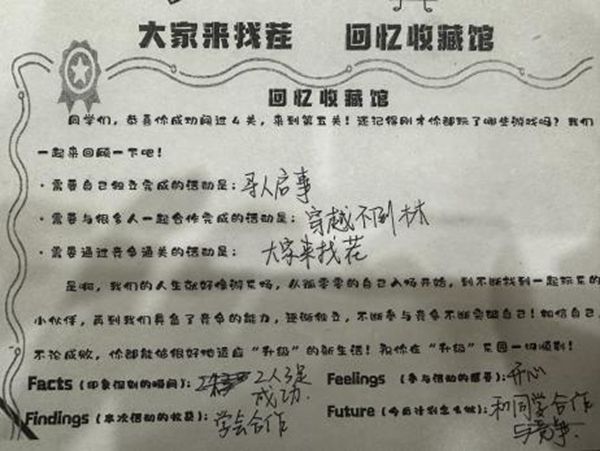 大家来找茬 回忆收藏馆
回忆收藏馆
同学们，恭喜你成功闯过4关，来到第五关！还记得刚才你都玩了哪些游戏吗？我们
一起来回顾一下吧！
·需要自己独立完成的活动是：寻人启事
·需要与很多人一起合作完成的活动是：穿越不倒林
·需要通过竞争通关的活动是：大家来找茬
是啊，我们的人生就好像游乐场，从孤零零的自己入场开始，到不断找到一起玩乐的
小伙伴，再到我们具备了竞争的能力，逐渐独立，不断参与竞争不断突破自己！相信自己，
不论成败，你都能够很好地适应“升级”的新生活！祝你在“升级”乐园一切顺利！
Facts（印象深刻的瞬间）：2人3足 Feelings （参与活动的感受）：开心
成功.
Findings（本次活动的收获）：学会合作 Future（今后计划怎么做）：和同学合作
与竞争.